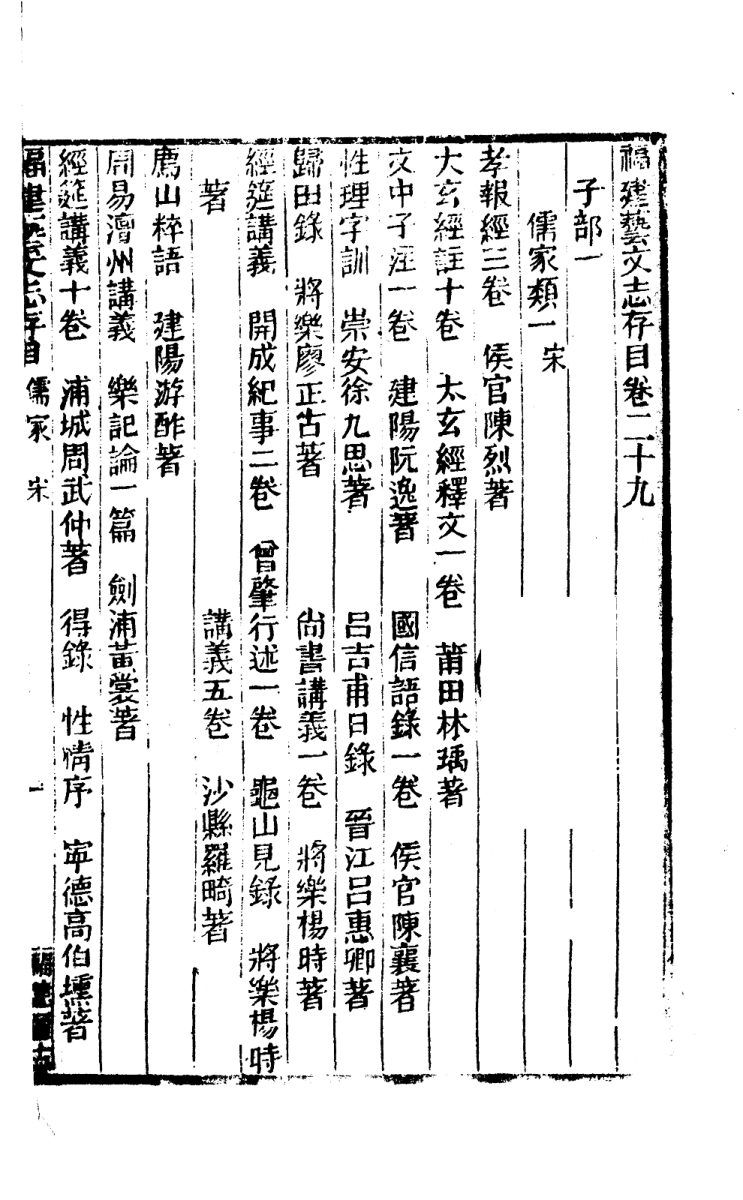 福建藝文志存目卷二十九
子部一
儒家類一 宋
孝報經三卷 侯官陳烈著
大玄經註十卷 太玄經釋文一卷 莆田林瑀著
文中子注一卷 建陽阮逸著 國信語錄一卷 侯官陳襄著
性理字訓 崇安徐九思著 呂吉甫日錄 晉江呂惠卿著
歸田錄 將樂廖正古著 尚書講義一卷 將樂楊時著
經筵講義 開成紀事二卷 曾肇行述一卷 龜山見錄 將樂楊時
著 講義五卷 沙縣羅畸著
廌山粹語 建陽游酢著
周易澶州講義 樂記論一篇 劍浦黃裳著
經筵講義十卷 浦城周武仲著 得錄 性情序 寧德高伯壎著
福建藝文志存目 儒家 宋 一